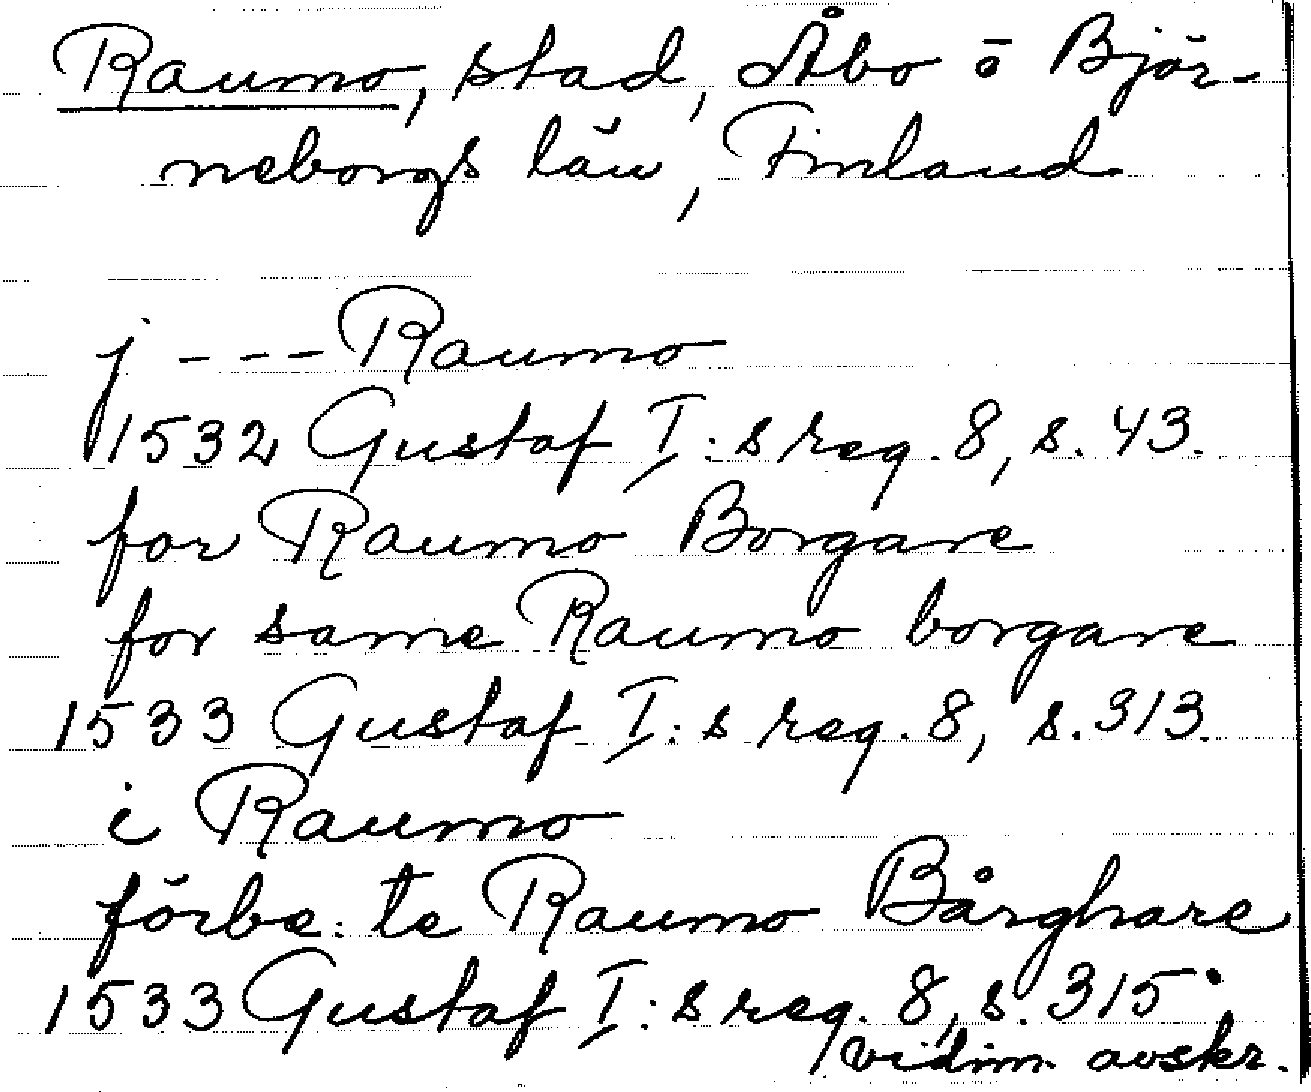 Raumo, stad, Åbo o Björ-
neborgs län, Finland
j --- Raumo
1532 Gustaf I:s reg. 8, s. 43.
for Raumo Borgare
for same Raumo borgare
1533 Gustaf I:s reg. 8, s. 313.
i Raumo
förbe: te Raumo Bårghare
1533 Gustaf I:s reg. 8, s. 315.
vidim. avskr.